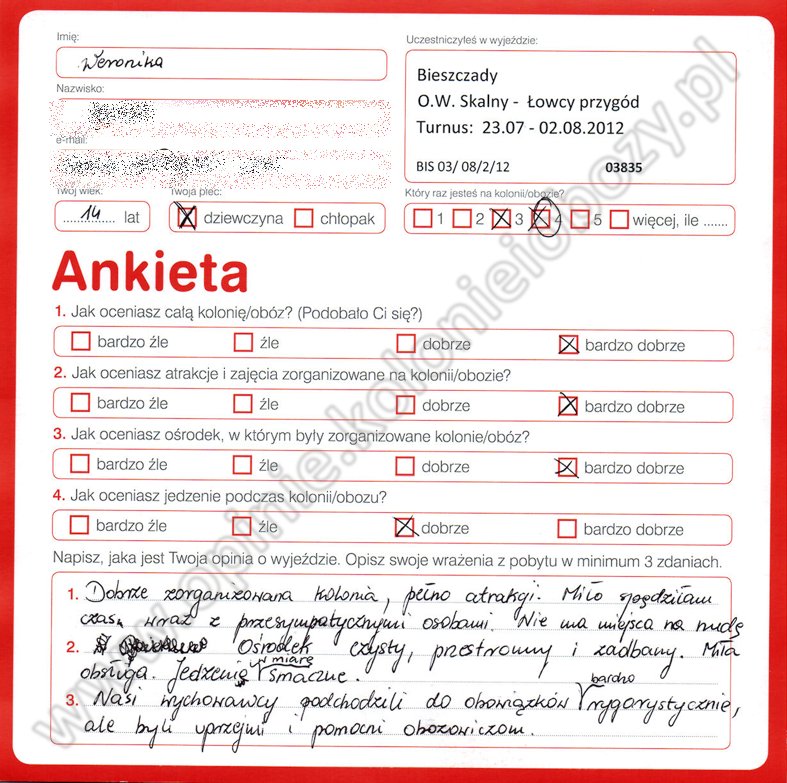 Imię:
Weronika
Uczestniczyłeś w wyjeździe:
Bieszczady
O.W. Skalny - Łowcy przygód
Turnus: 23.07 - 02.08.2012
BIS 03/ 08/2/12 03835
Nazwisko:
e-mail:
Twój wiek:
14 lat
Twoja płeć:
dziewczyna chłopak
Który raz jesteś na kolonii/obozie?
1 2 3 4 5 więcej, ile .......
Ankieta
1. Jak oceniasz całą kolonię/obóz? (Podobało Ci się?)
bardzo źle źle dobrze bardzo dobrze
2. Jak oceniasz atrakcje i zajęcia zorganizowane na kolonii/obozie?
bardzo źle źle dobrze bardzo dobrze
3. Jak oceniasz ośrodek, w którym były zorganizowane kolonie/obóz?
bardzo źle źle dobrze bardzo dobrze
4. Jak oceniasz jedzenie podczas kolonii/obozu?
bardzo źle źle dobrze bardzo dobrze
Napisz, jaka jest Twoja opinia o wyjeździe. Opisz swoje wrażenia z pobytu w minimum 3 zdaniach.
1. Dobrze zorganizowana kolonia, pełno atrakcji. Miło spędziłam
czas wraz z przesympatycznymi osobami. Nie ma miejsca na nudę
2. Ośrodek czysty, przestronny i zadbany. Miła
obsługa. Jedzenie w miarę smaczne.
3. Nasi wychowawcy podchodzili do obowiązków bardzo rygorystycznie,
ale byli uprzejmi i pomocni obozowiczom.
www.opinie.kolonieiobozy.pl